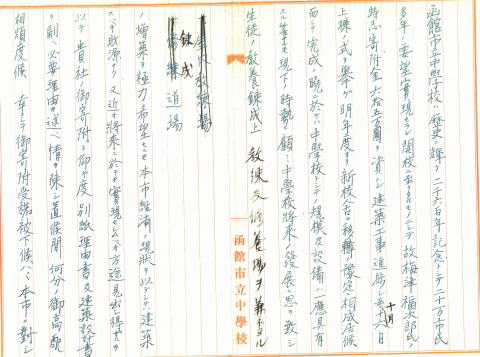 函館市立中學校ハ歴史ニ輝ク二千六百年記念トシテ二十万市民
多年ノ要望實現シ開校ニ至リタルモノニシテ故梅津福次郎氏ノ
特志寄附金六拾五萬圓ヲ資シ建築工事進捗去十月六日
上棟ノ式ヲ擧ゲ明年度ヲ新校舎ニ移轉豫定相成居候
而シテ完成ノ暁ニ於テハ中學校トシテノ規模及設備ハ應具有
現下ノ時勢ニ顧ミ中學校將來ノ發展ニ思ヲ致シ
生徒ノ教養錬成上 教練及修養場ヲ兼ネタル
函館市立中學校
錬成
道場
ノ増築ヲ極力希望セルモ本市經濟ノ現状ヲ以テシテハ建築
スベキ財源ナク又近キ將來ニ於テモ實現セシムベキ方途見出シ得ザルヲ
以テ貴社ノ御寄附ヲ仰ギ度別紙理由書及建築設計書
ヲ副ヘ必要理由ヲ述ベ情ヲ陳シ置候間何分ノ御高配
相煩度候 幸ニシテ御寄附受諾被下候ハヾ本市ニ對シ